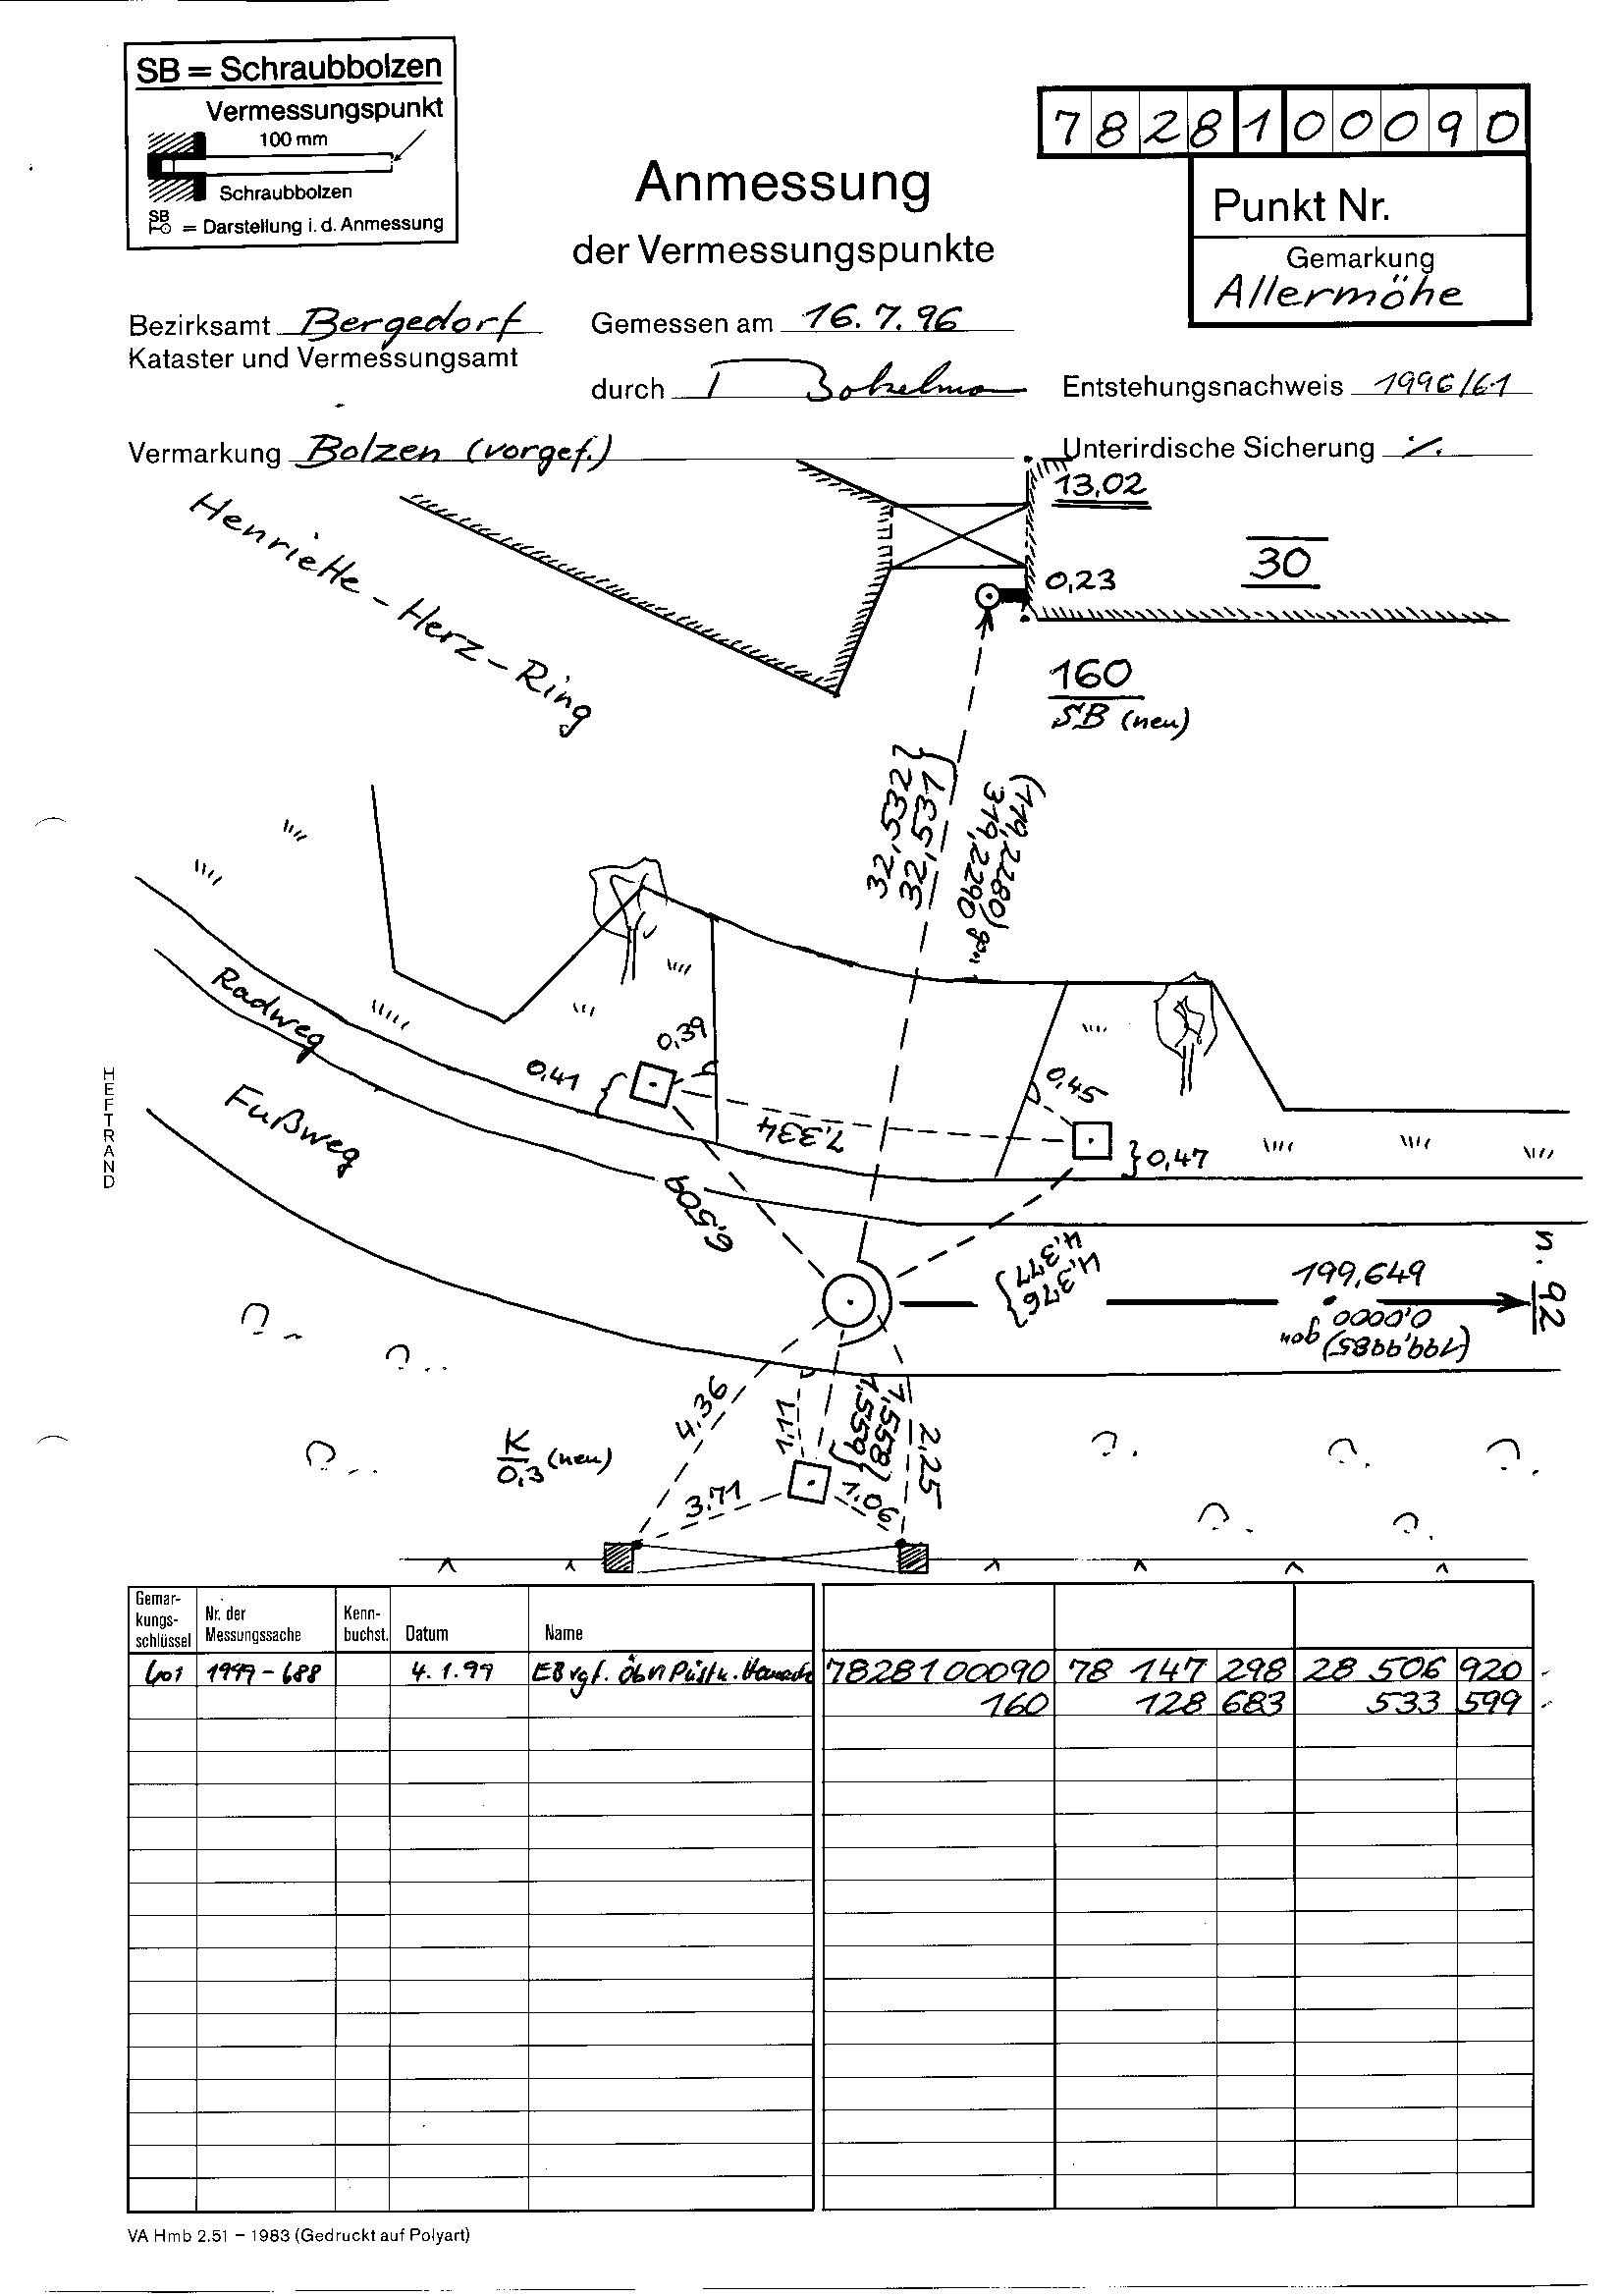 SB = Schraubbolzen
Vermessungspunkt
100 mm
Schraubbolzen
SB
= Darstellung i. d. Anmessung
Anmessung
der Vermessungspunkte
78281 00090
Punkt Nr.
Gemarkung
Allermöhe
Bezirksamt Bergedorf
Kataster und Vermessungsamt
Gemessen am 16.7.96
durch
Entstehungsnachweis 1996/61
Vermarkung Bolzen (vorgef.)
Unterirdische Sicherung ·/.
Henriette-Herz-Ring
13,02
30
0,23
160
SB (neu)
32,532
32,531
(119,2280)
319,2290 gon
Radweg
Fußweg
0,39
0,41
7,334
0,45
0,47
6,509
4,377
4,376
199,649
0,0000
(199,9985) gon
n. 92
4,36
1,11
1,559
1,558
2,25
K
0,3 (neu)
3.71
1,06
HEFTRAND
Gemar-
kungs-
schlüssel
Nr. der
Messungssache
Kenn-
buchst.
Datum
Name
601 1999-688 4.1.99 78281 00090 78 147 298 28 506 920
160 128 683 533 599
VA Hmb 2.51 – 1983 (Gedruckt auf Polyart)